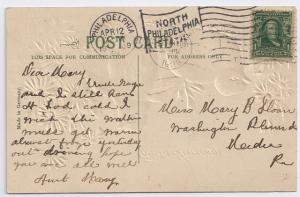 PHILADELPHIA
APR 12
NORTH
PHILADELPHIA
STA.
POST CARD
THIS SPACE FOR COMMUNICATION
FOR ADDRESS ONLY
Dear Mary
and I still have
A bad cold I
wish this weather
would get warm
almost froze yesterday
out driving hope
you are all well
Aunt Mary
Miss Mary B Sloan
Washington
Media
Pa